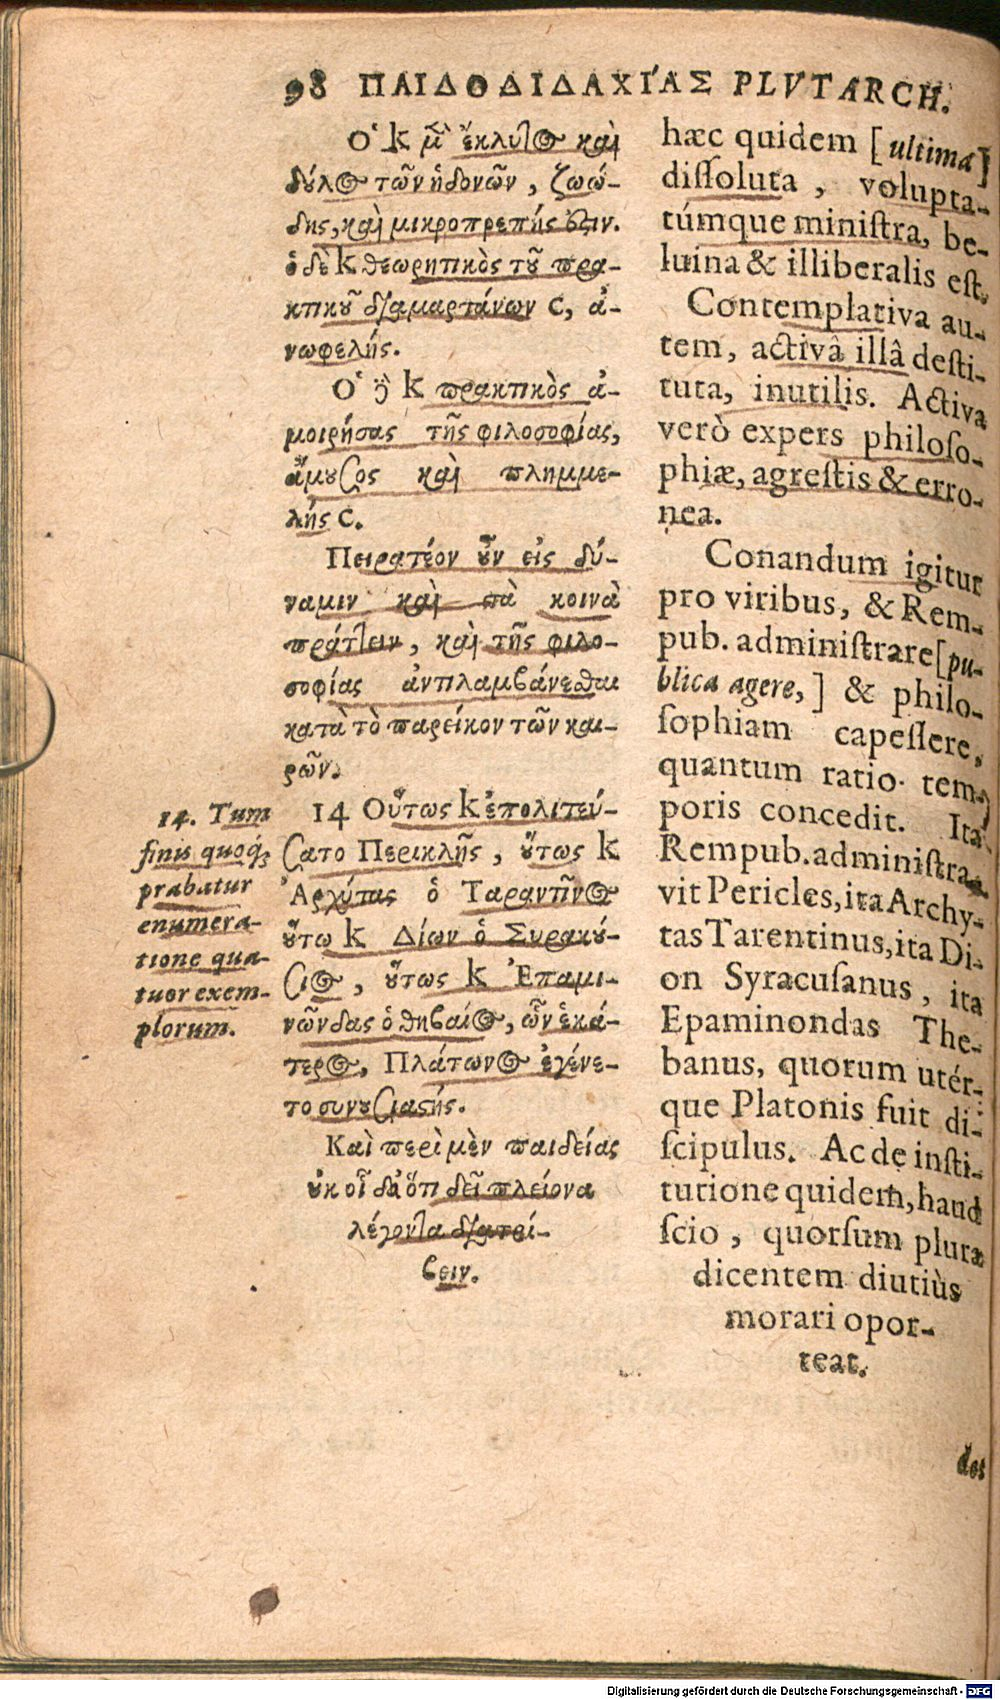 98 ΠΑΙΔΟΔΙΔΑΧΊΑΣ PLVTARCH.
Ὁ κ μ̀ ἔκλυτος καὶ
δούλος τῶν ἡδονῶν, ζωώ-
δης, καὶ μικροπρεπής ὅστιν.
ὁ δὲ κ θεωρητικὸς τοῦ πρα-
κτικοῦ διαμαρτάνων C, ἀ-
νωφελής.
Ὁ ὃ κ πρακτικὸς ἀ-
μοιρήσας τῆς φιλοσοφίας,
ἄμουσος καὶ πλημμε-
λής C.
Πειρατέον οὖν εἰς δύ-
ναμιν καὶ τὰ κοινὰ
πράττειν, καὶ τῆς φιλο-
σοφίας ἀντιλαμβάνεσθαι
κατὰ τὸ παρείκον τῶν και-
ρῶν.
14 Οὕτως κ ἐπολιτεύ-
σατο Περικλῆς, οὕτως κ
Ἀρχύτας ὁ Ταραντῖνος
οὕτω κ Δίων ὁ Συρακού-
σιος, οὕτως κ Ἐπαμι-
νῶνδας ὁ θηβαίος, ὧν ἑκά-
τερος, Πλάτωνος ἐγένε-
το συνουσιαστής.
Καὶ περὶ μὲν παιδείας
οὐκ οἶδα ὅτι δεῖ πλείονα
λέγοντα διατρί-
βειν.
14. Tum
finis quoq́;
prabatur
enumera-
tione qua-
tuor exem-
plorum.
hæc quidem [ultima]
dissoluta, volupta-
túmque ministra, be-
luina & illiberalis est.
Contemplativa au-
tem, activâ illâ desti-
tuta, inutilis. Activa
verò expers philoso-
phiæ, agrestis & erro-
nea.
Conandum igitur
pro viribus, & Rem-
pub. administrare [pu-
blica agere,] & philo-
sophiam capessere,
quantum ratio tem-
poris concedit. Ita
Rempub. administra-
vit Pericles, ita Archy-
tas Tarentinus, ita Di-
on Syracusanus, ita
Epaminondas The-
banus, quorum utér-
que Platonis fuit di-
scipulus. Ac de insti-
tutione quidem, haud
scio, quorsum plura
dicentem diutiùs
morari opor-
teat.
des
Digitalisierung gefördert durch die Deutsche Forschungsgemeinschaft - DFG